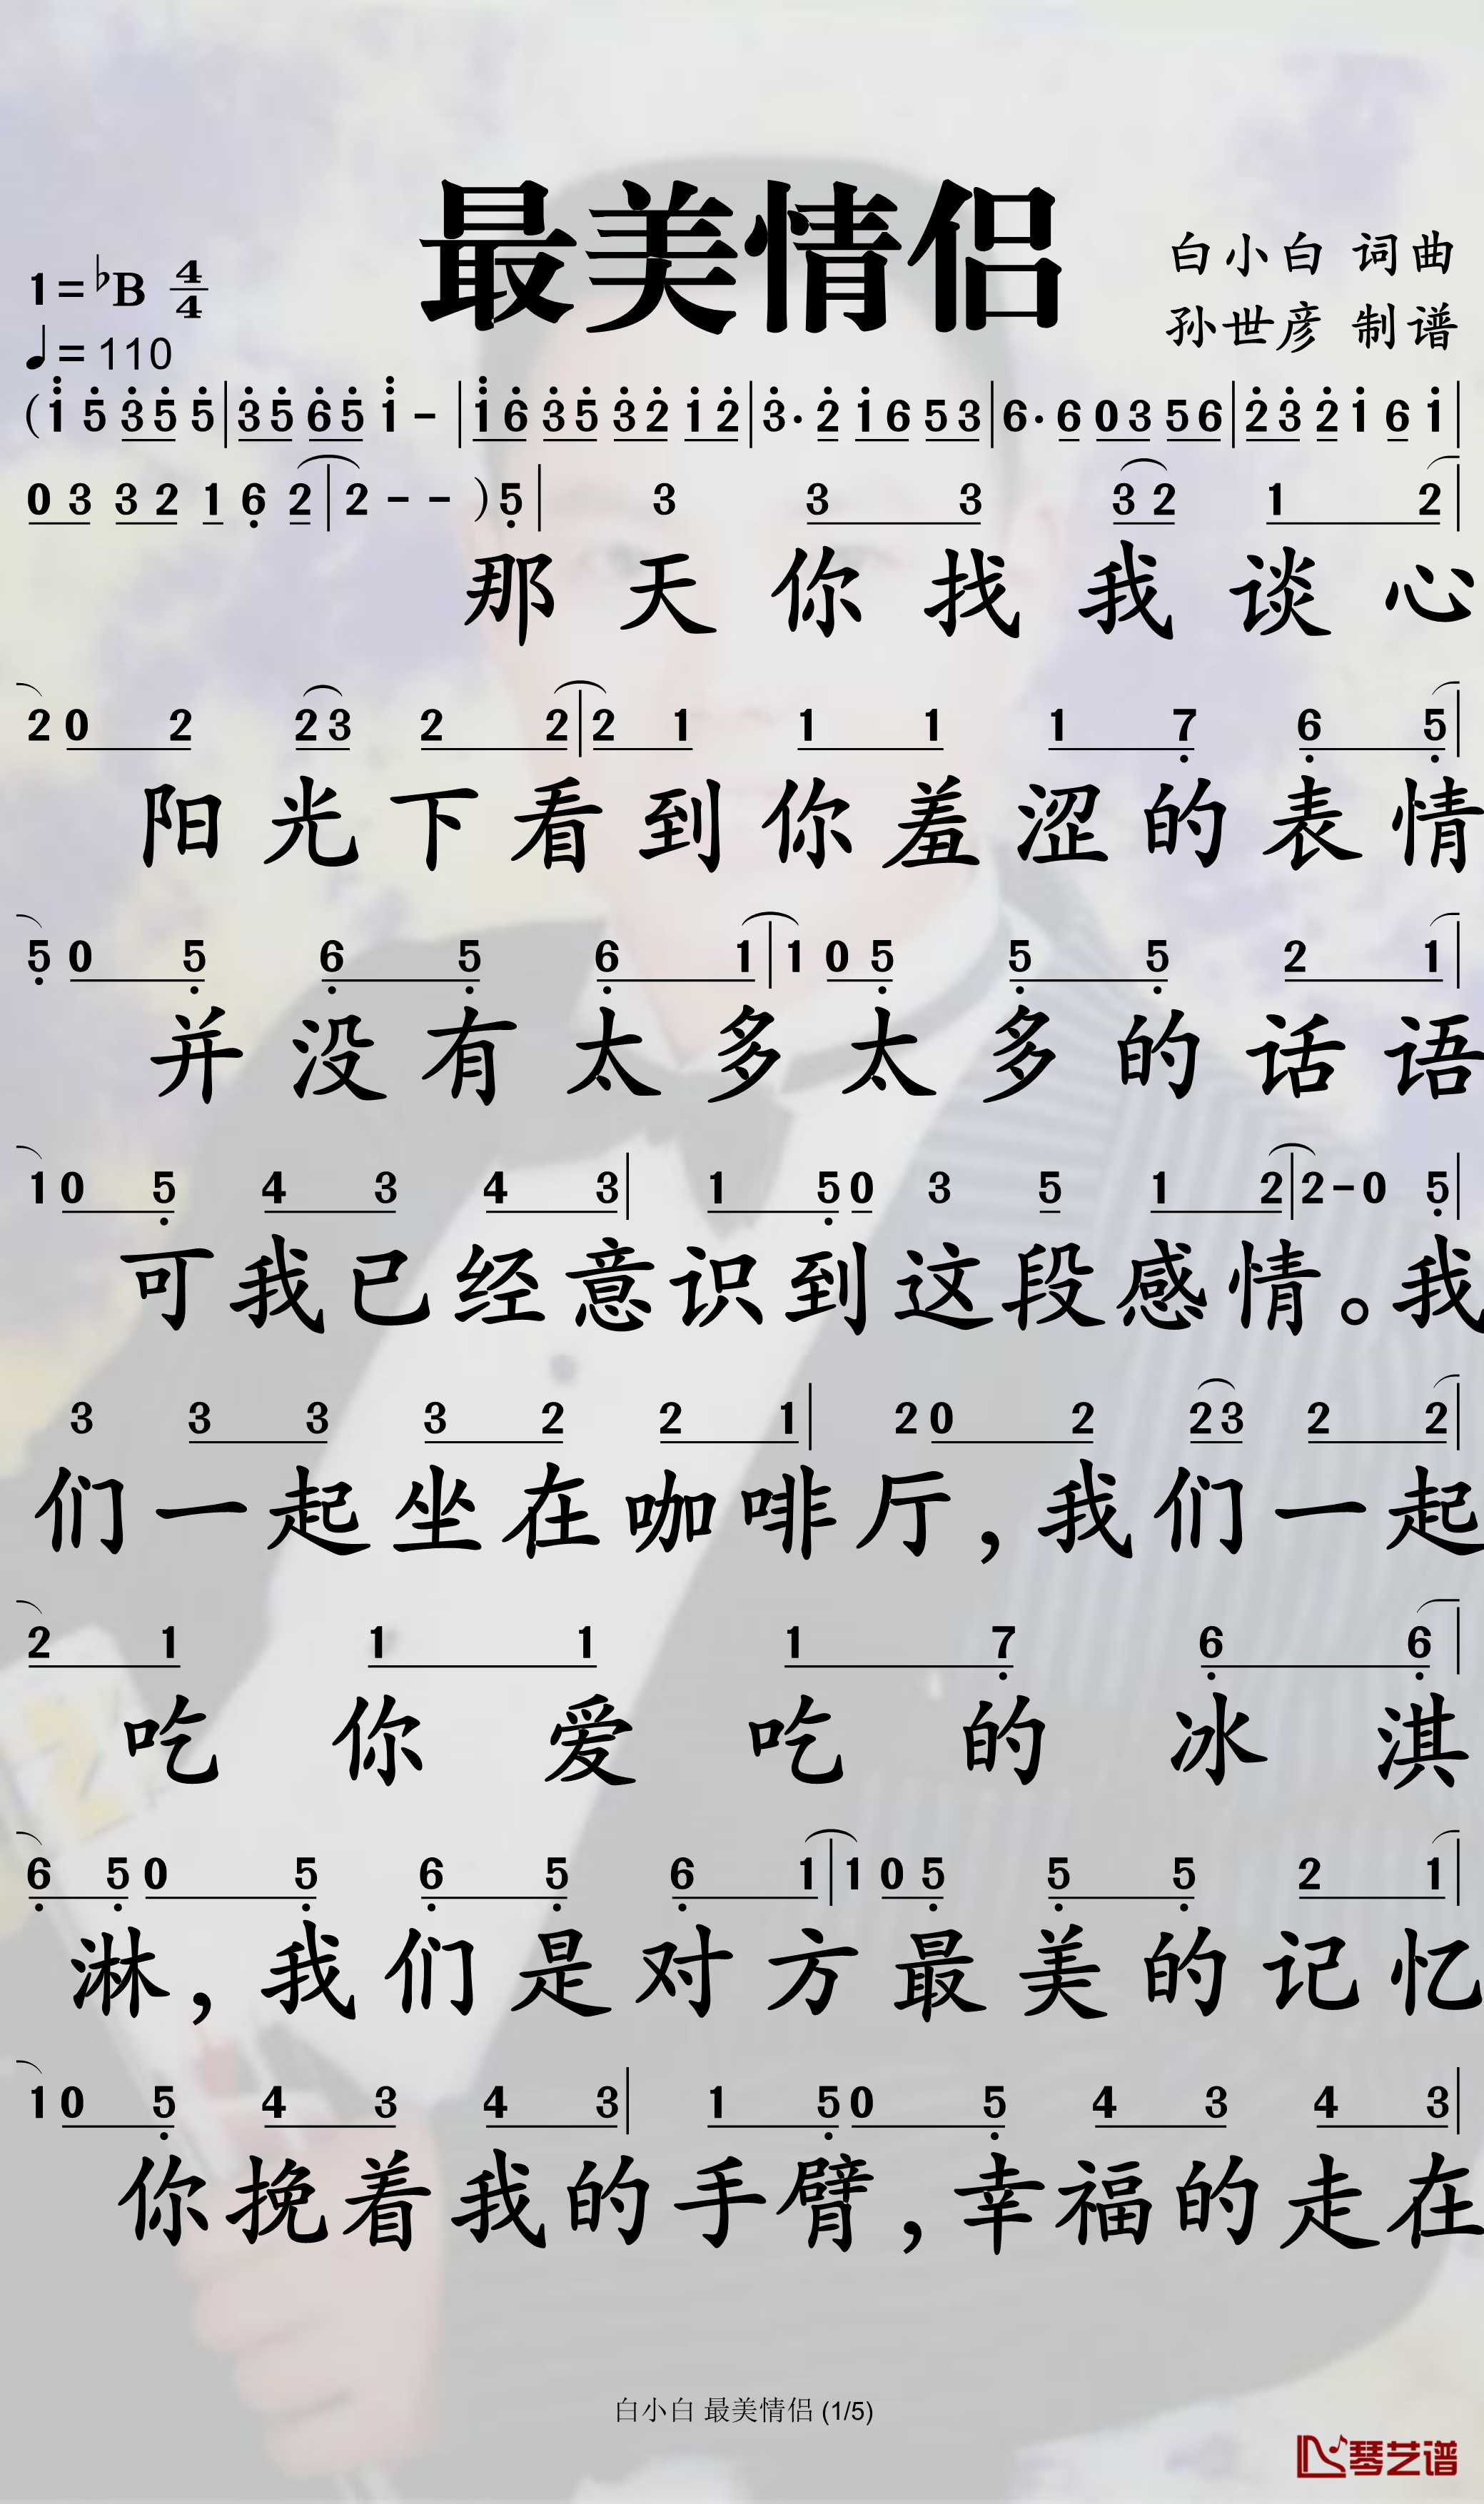 最美情侣
白小白 词曲
孙世彦 制谱
1=♭B 4/4
♩=110
(1 5 3 5 5|3 5 6 5 1 -|1 6 3 5 3 2 1 2|3· 2 1 6 5 3|6· 6 0 3 5 6|2 3 2 1 6 1|
0 3 3 2 1 6 2|2 - - )5| 3 3 3 3 2 1 2|
那天你找我谈心
2 0 2 2 3 2 2|2 1 1 1 1 7 6 5|
阳光下看到你羞涩的表情
5 0 5 6 5 6 1|1 0 5 5 5 2 1|
并没有太多太多的话语
1 0 5 4 3 4 3|1 5 0 3 5 1 2|2 - 0 5|
可我已经意识到这段感情。我
3 3 3 3 2 2 1|2 0 2 2 3 2 2|
们一起坐在咖啡厅,我们一起
2 1 1 1 1 7 6 6|
吃你爱吃的冰淇
6 5 0 5 6 5 6 1|1 0 5 5 5 2 1|
淋,我们是对方最美的记忆
1 0 5 4 3 4 3|1 5 0 5 4 3 4 3|
你挽着我的手臂,幸福的走在
白小白 最美情侣 (1/5)
琴艺谱